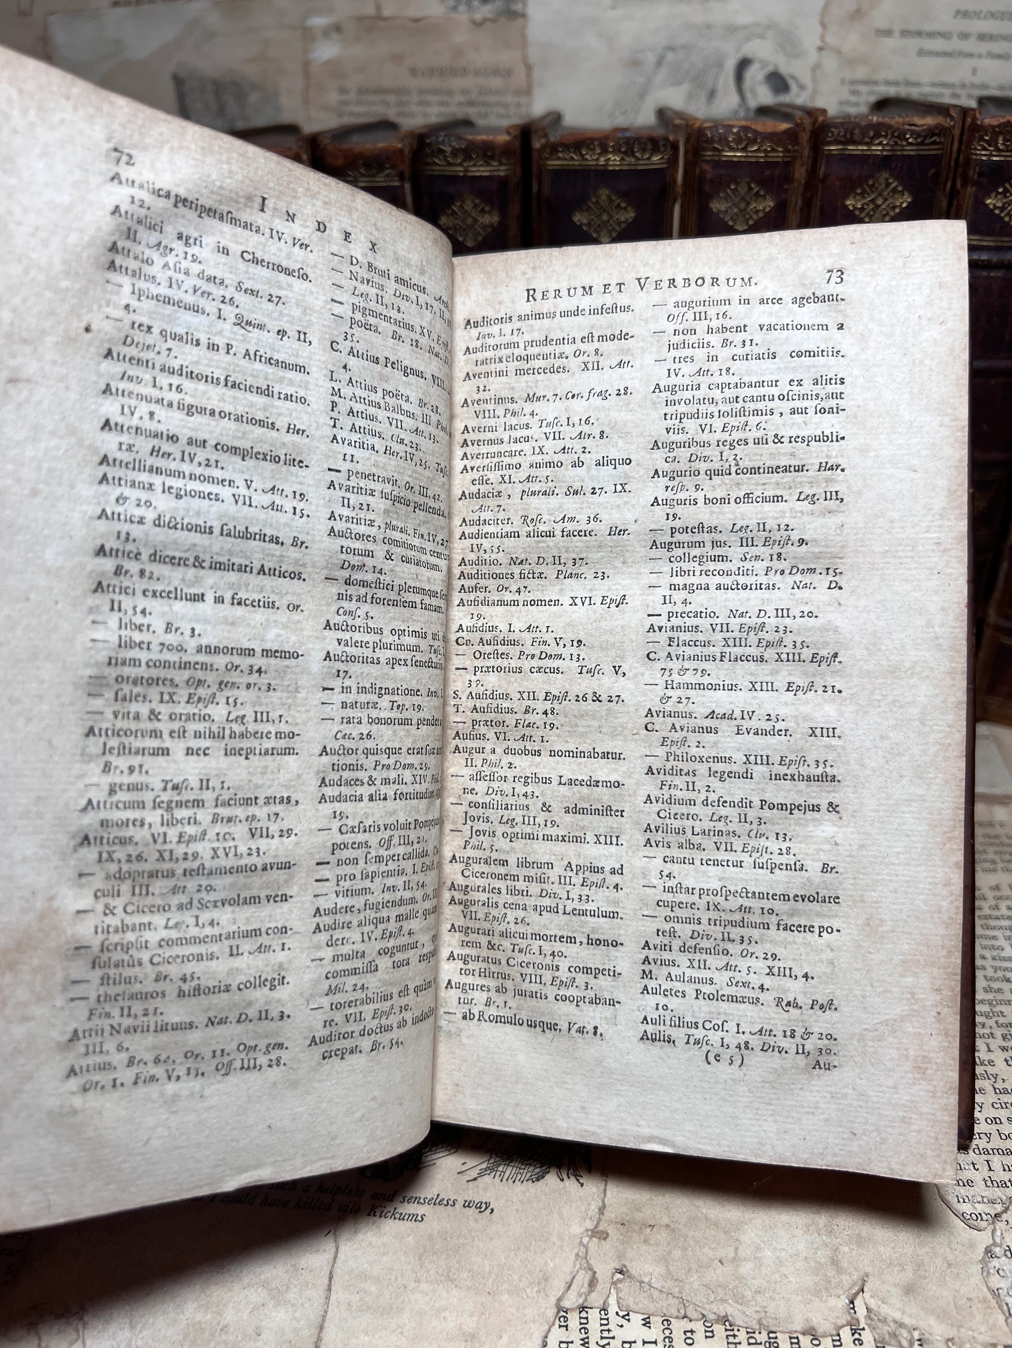 72
INDEX
Attalica peripetasmata. IV. Ver.
12.
Attalici agri in Cherroneso.
II. Agr. 19.
Attalo Asia data. Sext. 27.
Attalus. IV. Ver. 26.
— Iphemenus, I. Quint. ep. II,
4.
— rex qualis in P. Africanum.
Dejot. 7.
Attenti auditoris faciendi ratio.
Inv. I, 16.
Attenuata figura orationis. Her.
IV. 8.
Attenuatio aut complexio lite-
ræ. Her. IV, 21.
Attellianum nomen. V. Att. 19.
Attianæ legiones. VII. Att. 15.
& 20.
Atticæ dictionis salubritas, Br.
13.
Attice dicere & imitari Atticos.
Br. 82.
Attici excellunt in facetiis. Or.
II, 54.
— liber. Br. 3.
— liber 700. annorum memo-
riam continens. Or. 34.
— oratores. Opt. gen. or. 3.
— sales. IX. Epist. 15.
— vita & oratio. Leg. III, 1.
Atticorum est nihil habere mo-
lestiarum nec ineptiarum.
Br. 91.
— genus. Tusc. II, 1.
Atticum segnem faciunt ætas,
mores, liberi. Brut. ep. 17.
Atticus. VI. Epist. 10. VII, 29.
IX, 26. XI, 29. XVI, 23.
— adopratus testamento avun-
culi III. Att 20.
— & Cicero ad Scævolam ven-
titabant. Leg. I, 4.
— scripsit commentarium con-
sulatûs Ciceronis. II. Att. 1.
— stilus. Br. 45.
— thesauros historiæ collegit.
Fin. II, 21.
Attii Navii lituus. Nat. D. II, 3.
III, 6.
Attius. Br. 64. Or. 11. Opt. gen.
Or. 1. Fin. V, 13. Off. III, 28.
— D. Bruti amicus.
— Navius. Div. I, 17.
Leg. II, 13.
— pigmentarius. XV.
— poëta. Br. 18.
35.
C. Attius Pelignus. VIII.
4.
L. Attius poëta. Br. 28.
M. Attius Balbus. III. Phil.
P. Attius. VII. Att. 13.
T. Attius. Clu. 23.
Avaritia. Her. IV, 25.
11.
— penetravit. Or. III, 42.
Avaritiæ suspicio pellenda.
II, 21.
Avaritiæ, plurali. Fin. IV, 27
Auctores comitiorum centu
torum & curiatorum.
Dom. 14.
— domestici plerumque
nis ad forensem famam.
Cons. 5.
Auctoribus optimis uti
valere plurimum.
Auctoritas apex senectutis
17.
— in indignatione. Inv.
— naturæ. Top. 19.
— rata bonorum pendet
Cæc. 26.
Auctor quisque erat suæ
tionis. Pro Dom. 29.
Audaces & mali. XIV.
Audacia alia fortitudine
19.
— Cæsaris voluit Pompejus
potens. Off. III, 21.
— non semper callida.
— pro sapientia. I. Epist.
— vitium. Inv. II, 54.
Audere, fugiendum. Or. II
Audire aliqua malle quam
dere. IV. Epist. 4.
— multa coguntur,
commissa tota
Mil. 24.
— torerabilius est quàm
re. VII. Epist. 30.
Auditor doctus ab indocto
crepat. Br. 54.
RERUM ET VERBORUM. 73
Auditoris animus unde infestus.
Inv. I. 17.
Auditorum prudentia est mode-
ratrix eloquentiæ, Or. 8.
Aventini mercedes. XII. Att.
32.
Aventinus. Mur. 7. Cor. frag. 28.
VIII. Phil. 4.
Averni lacus. Tusc. I, 16.
Avernus lacus. VII. Atr. 8.
Averruncare. IX. Att. 2.
Aversissimo animo ab aliquo
esse. XI. Att. 5.
Audaciæ, plurali. Sul. 27. IX.
Att. 7.
Audaciter. Rosc. Am. 36.
Audientiam alicui facere. Her.
IV, 55.
Auditio. Nat. D. II, 37.
Auditiones fictæ. Planc. 23.
Aufer. Or. 47.
Aufidianum nomen. XVI. Epist.
19.
Aufidius. I. Att. 1.
Cn. Aufidius. Fin. V, 19.
— Orestes. Pro Dom. 13.
— prætorius cæcus. Tusc. V,
39.
S. Aufidius. XII. Epist. 26 & 27.
T. Aufidius. Br. 48.
— prætor. Flac. 19.
Aufius. VI. Att. 1.
Augur a duobus nominabatur.
II. Phil. 2.
— assessor regibus Lacedæmo-
ne. Div. I, 43.
— consiliarius & administer
Jovis. Leg. III, 19.
— Jovis optimi maximi. XIII.
Phil. 5.
Auguralem librum Appius ad
Ciceronem misit. III. Epist. 4.
Augurales libri. Div. I, 33.
Auguralis cena apud Lentulum.
VII. Epist. 26.
Augurari alicui mortem, hono-
rem &c. Tusc. I, 40.
Auguratus Ciceronis competi-
tor Hirrus. VIII, Epist. 3.
Augures ab juratis cooptaban-
tur. Br. 1.
— ab Romulo usque, Vat. 8.
— augurium in arce agebant.
Off. III, 16.
— non habent vacationem a
judiciis. Br. 31.
— tres in curiatis comitiis.
IV. Att. 18.
Auguria captabantur ex alitis
involatu, aut cantu oscinis, aut
tripudiis solistimis, aut soni-
viis. VI. Epist. 6.
Auguribus reges usi & respubli-
ca. Div. I, 2.
Augurio quid contineatur. Har.
resp. 9.
Auguris boni officium. Leg. III,
19.
— potestas. Leg. II, 12.
Augurum jus. III. Epist. 9.
— collegium. Sen. 18.
— libri reconditi. Pro Dom. 15.
— magna auctoritas. Nat. D.
II, 4.
— precatio. Nat. D. III, 20.
Avianius. VII. Epist. 23.
— Flaccus. XIII. Epist. 35.
C. Avianius Flaccus. XIII. Epist.
75 & 79.
— Hammonius. XIII. Epist. 21.
& 27.
Avianus. Acad. IV. 25.
C. Avianus Evander. XIII.
Epist. 2.
— Philoxenus. XIII. Epist. 35.
Aviditas legendi inexhausta.
Fin. II, 2.
Avidium defendit Pompejus &
Cicero. Leg. II, 3.
Avilius Larinas. Clu. 13.
Avis alba. VII. Epist. 28.
— cantu tenetur suspensa. Br.
54.
— instar prospectantem evolare
cupere. IX. Att. 10.
— omnis tripudium facere po-
test. Div. II, 35.
Aviti defensio. Or. 29.
Avius. XII. Att. 5. XIII, 4.
M. Aulanus. Sext. 4.
Auletes Ptolemæus. Rab. Post.
10.
Auli filius Cos. I. Att. 18 & 20.
Aulis, Tusc. I, 48. Div. II, 30.
(e 5) Au-
a helpless and senseless way,
could have killed
Kickums